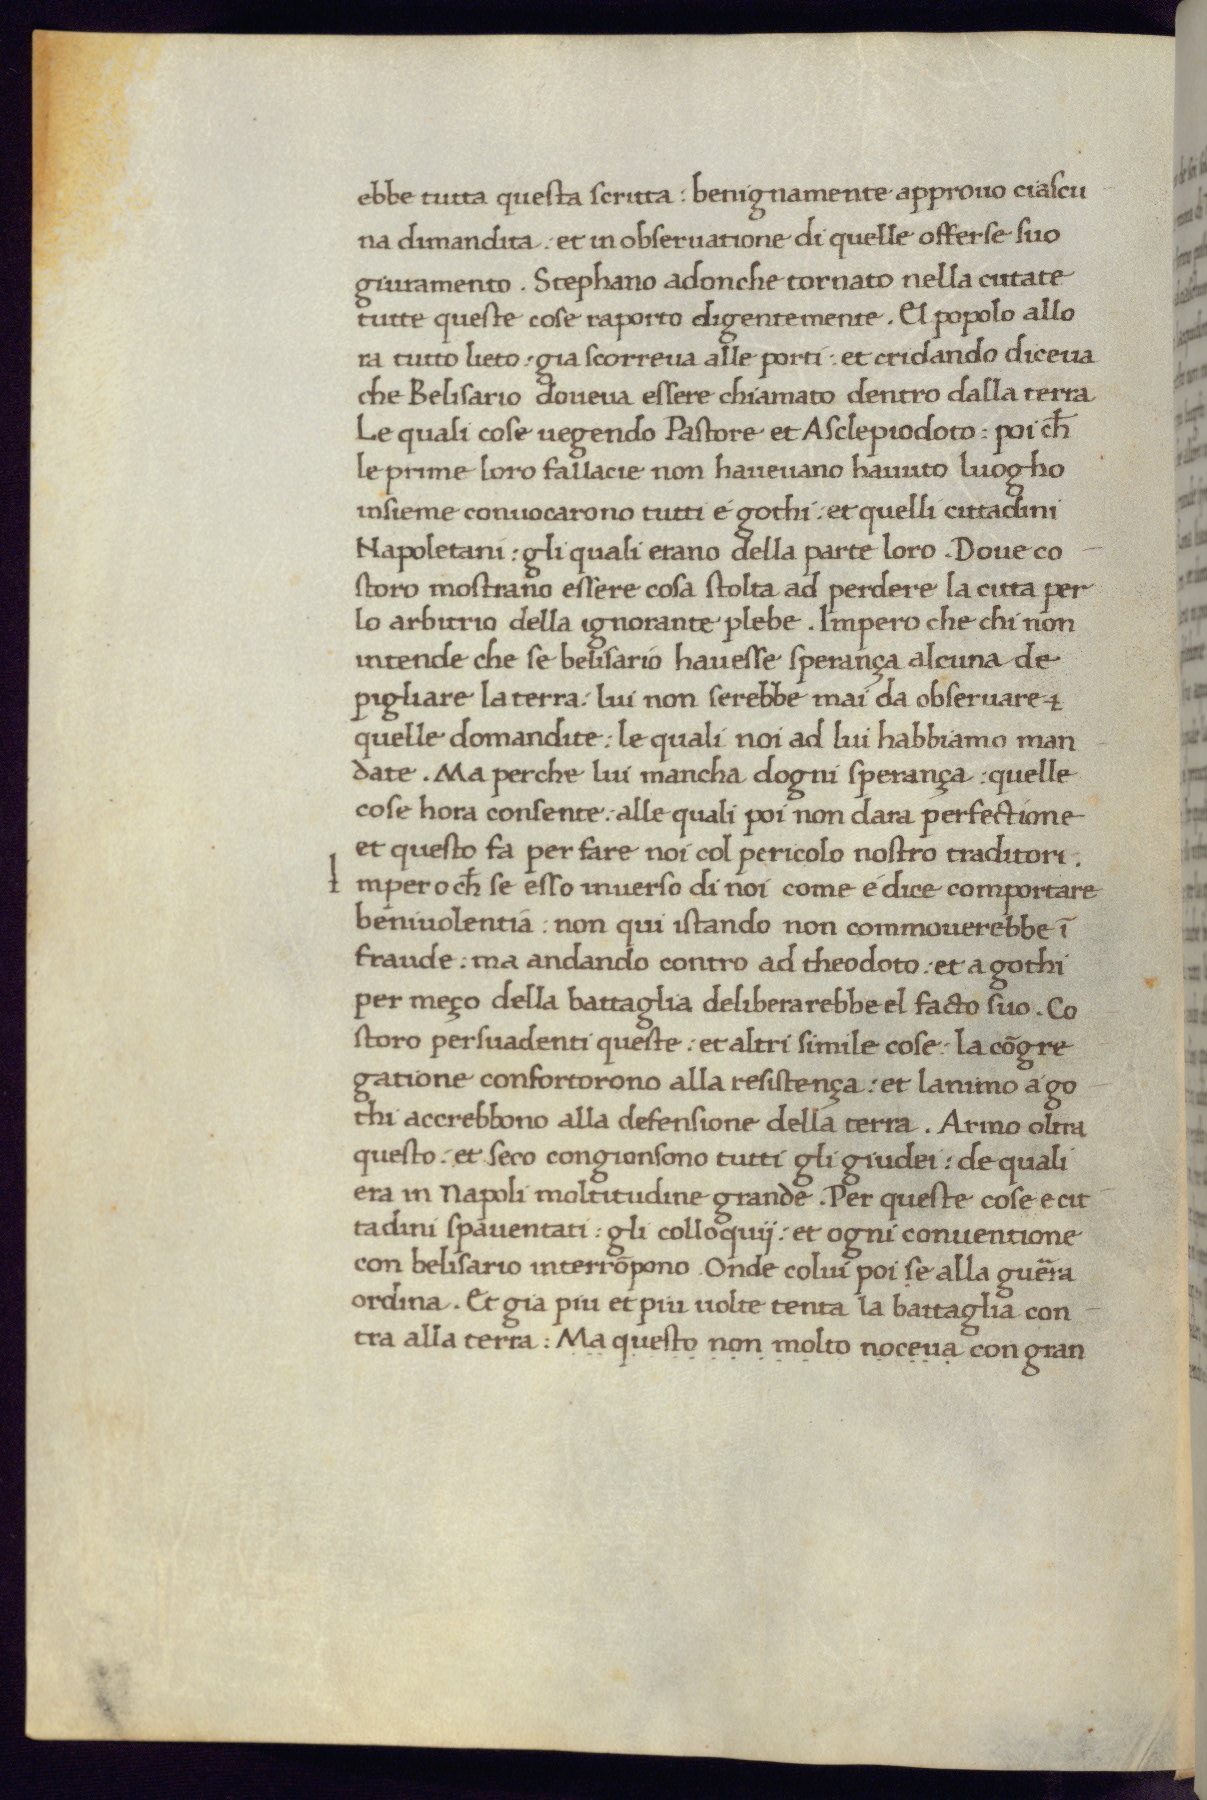 ebbe tutta questa scritta : benignamente approuo ciascu
na dimandita : et in obseruatione di quelle offerse suo
giuramento . Stephano adonche tornato nella cittate
tutte queste cose raporto digentemente . El popolo allo
ra tutto lieto : gia scorreua alle porti : et cridando diceua
che Belisario doueua essere chiamato dentro dalla terra
Le quali cose uegendo Pastore et Asclepiodoto : poi ch̄
le prime loro fallacie non haueuano hauuto luogho
insieme conuocarono tutti e gothi : et quelli cittadini
Napoletani : gli quali erano della parte loro . Doue co
storo mostrano essere cosa stolta ad perdere la citta per
lo arbitrio della ignorante plebe . Impero che chi non
intende che se belisario hauesse sperança alcuna de
pigliare la terra : lui non serebbe mai da obseruare
quelle domandite : le quali noi ad lui habbiamo man
date . Ma perche lui mancha dogni sperança : quelle
cose hora consente : alle quali poi non dara perfectione
et questo fa per fare noi col pericolo nostro traditori .
Impero ch̄ se esso inuerso di noi come e dice comportare
beniuolentia : non qui istando non commouerebbe ī
fraude : ma andando contro ad theodoto : et a gothi
per meço della battaglia deliberarebbe el facto suo . Co
storo persuadenti queste : et altri simile cose : la cōgre
gatione confortorono alla resistença : et lanimo a go
thi accrebbono alla defensione della terra . Arino oltra
questo : et seco congionsono tutti gli giudei : de quali
era in Napoli moltitudine grande . Per queste cose e cit
tadini spauentati : gli colloquij : et ogni conuentione
con belisario interrōpono . Onde colui poi se alla guerra
ordina . Et gia piu et piu uolte tenta la battaglia con
tra alla terra : Ma questo non molto noceua con gran